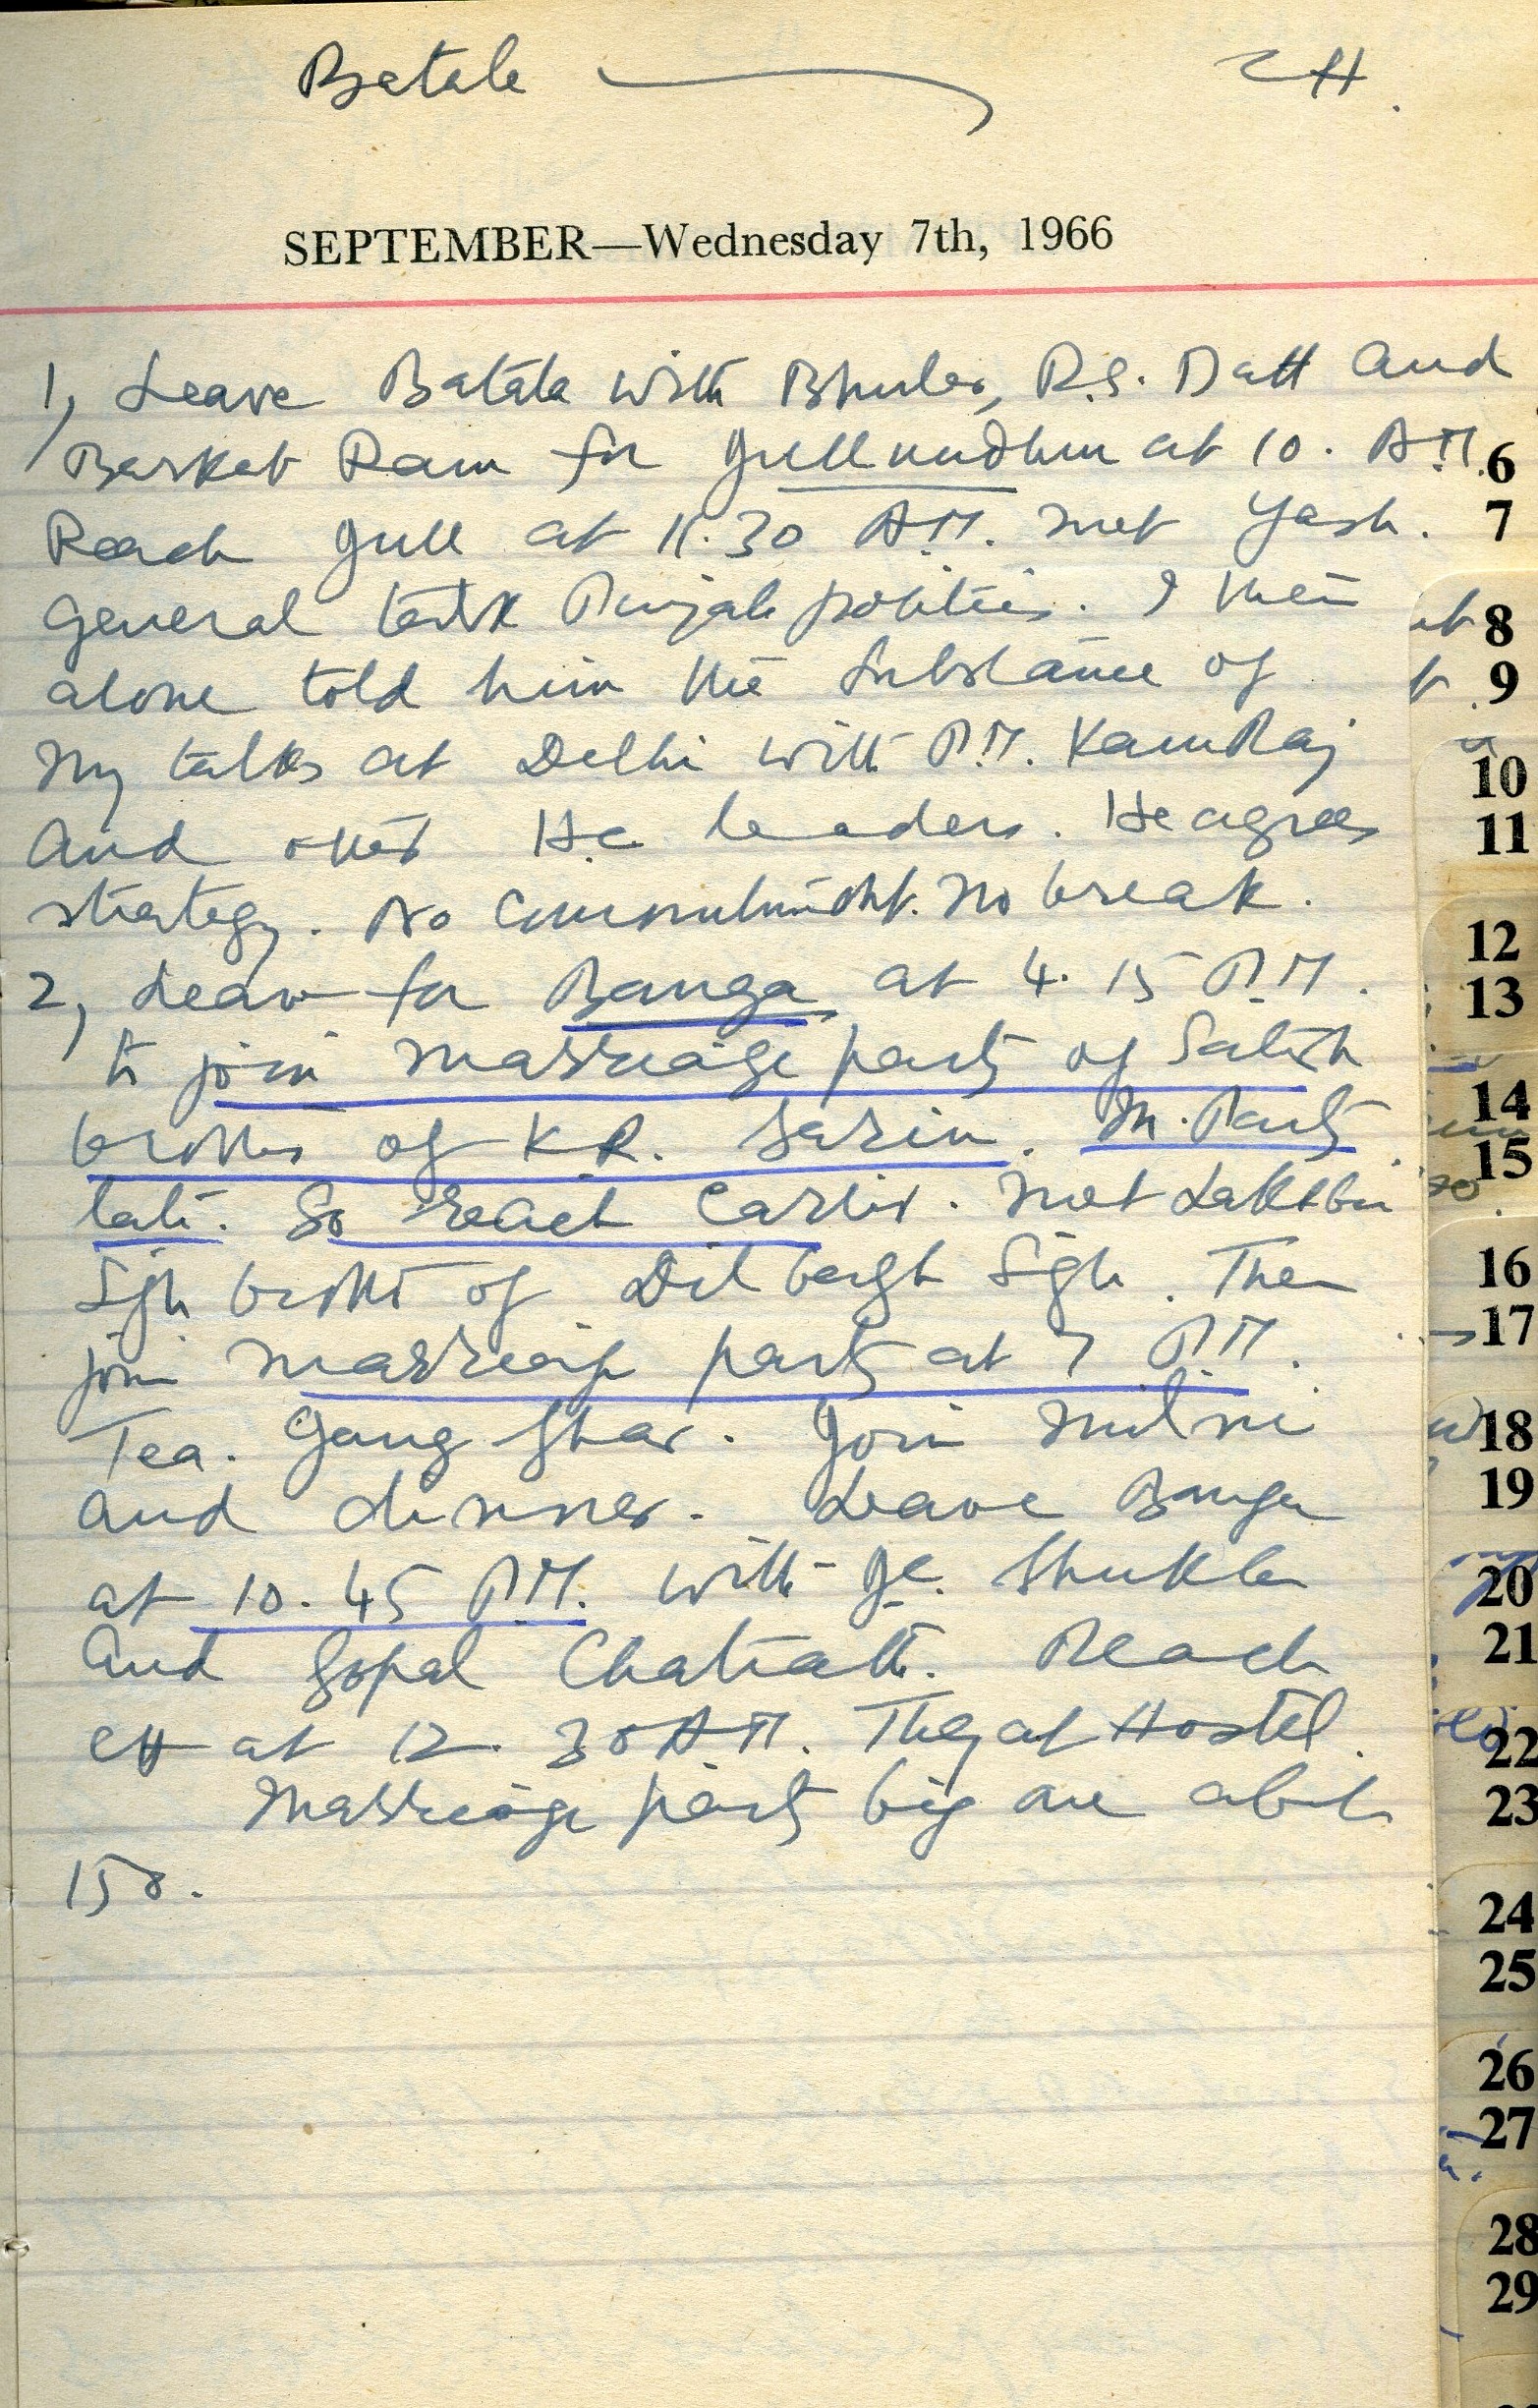 Batala CH.
SEPTEMBER—Wednesday 7th, 1966
1, Leave Batala with Bhuler, R.S. Datt and
Barkat Ram for Jullundhur at 10. A.M.
Reach Jull at 11.30 A.M. met Yash.
General talk Punjab politics. I then
alone told him the substance of
my talks at Delhi with P.M. KamRaj
and other H.C. leaders. He agrees
strategy. No Commitment. No break.
2, Leave for Banga at 4.15 P.M.
to join marriage party of Satish
brother of K.R. Sarin. M. Party
late. So reach Earlier. Met
Sigh brother of Dilbagh Sigh. Then
join marriage party at 7 P.M.
Tea. Join milni
and dinner. Leave Banga
at 10.45 P.M. with Shukla
and Gopal Reach
CH at 12.30 A.M. They at Hostel.
Marriage party big one about
150.
6
7
8
9
10
11
12
13
14
15
16
17
18
19
20
21
22
23
24
25
26
27
28
29